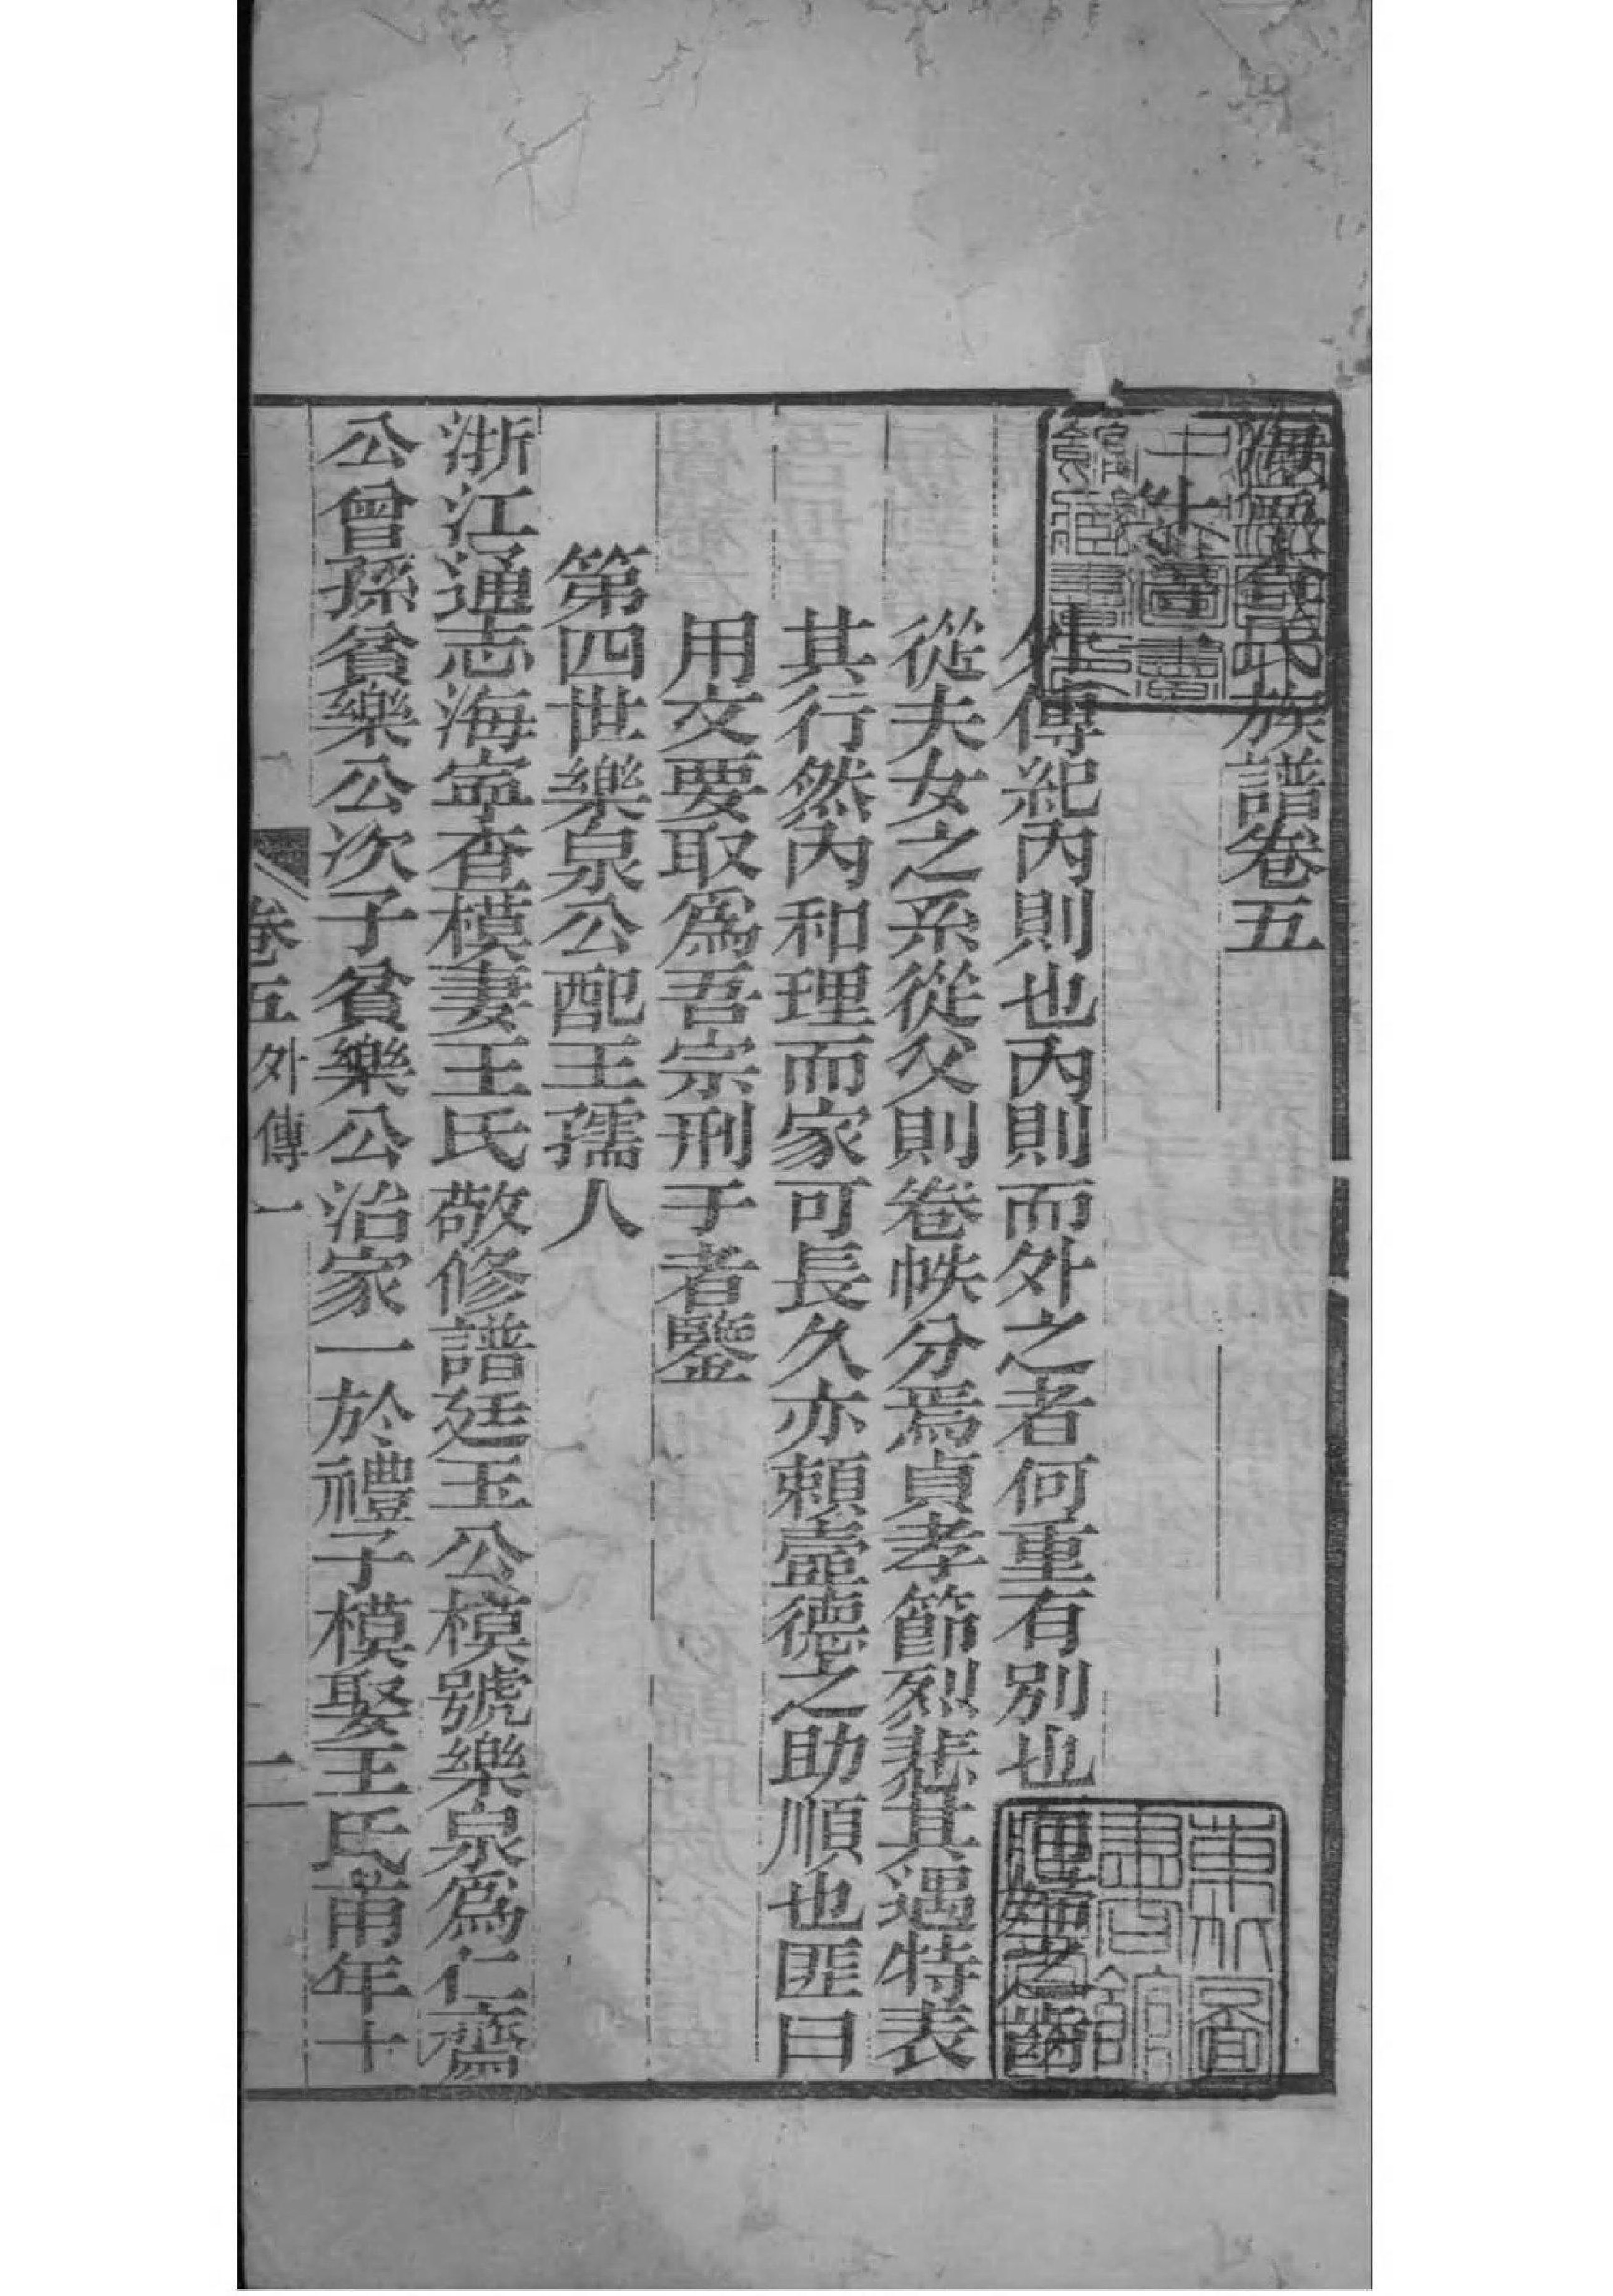 海寧查氏族譜卷五
外傳紀內則也內則而外之者何重有別也
從夫女之系從父則卷帙分焉貞孝節烈悲其遇特表
其行然內和理而家可長久亦賴壼德之助順也匪曰
用文要取爲吾宗刑于者鑒
第四世樂泉公配王孺人
浙江通志海寧查模妻王氏敬修譜廷玉公模號樂泉爲仁齋
公曾孫貧樂公次子貧樂公治家一於禮子模娶王氏甫年十
卷五外傳一 二